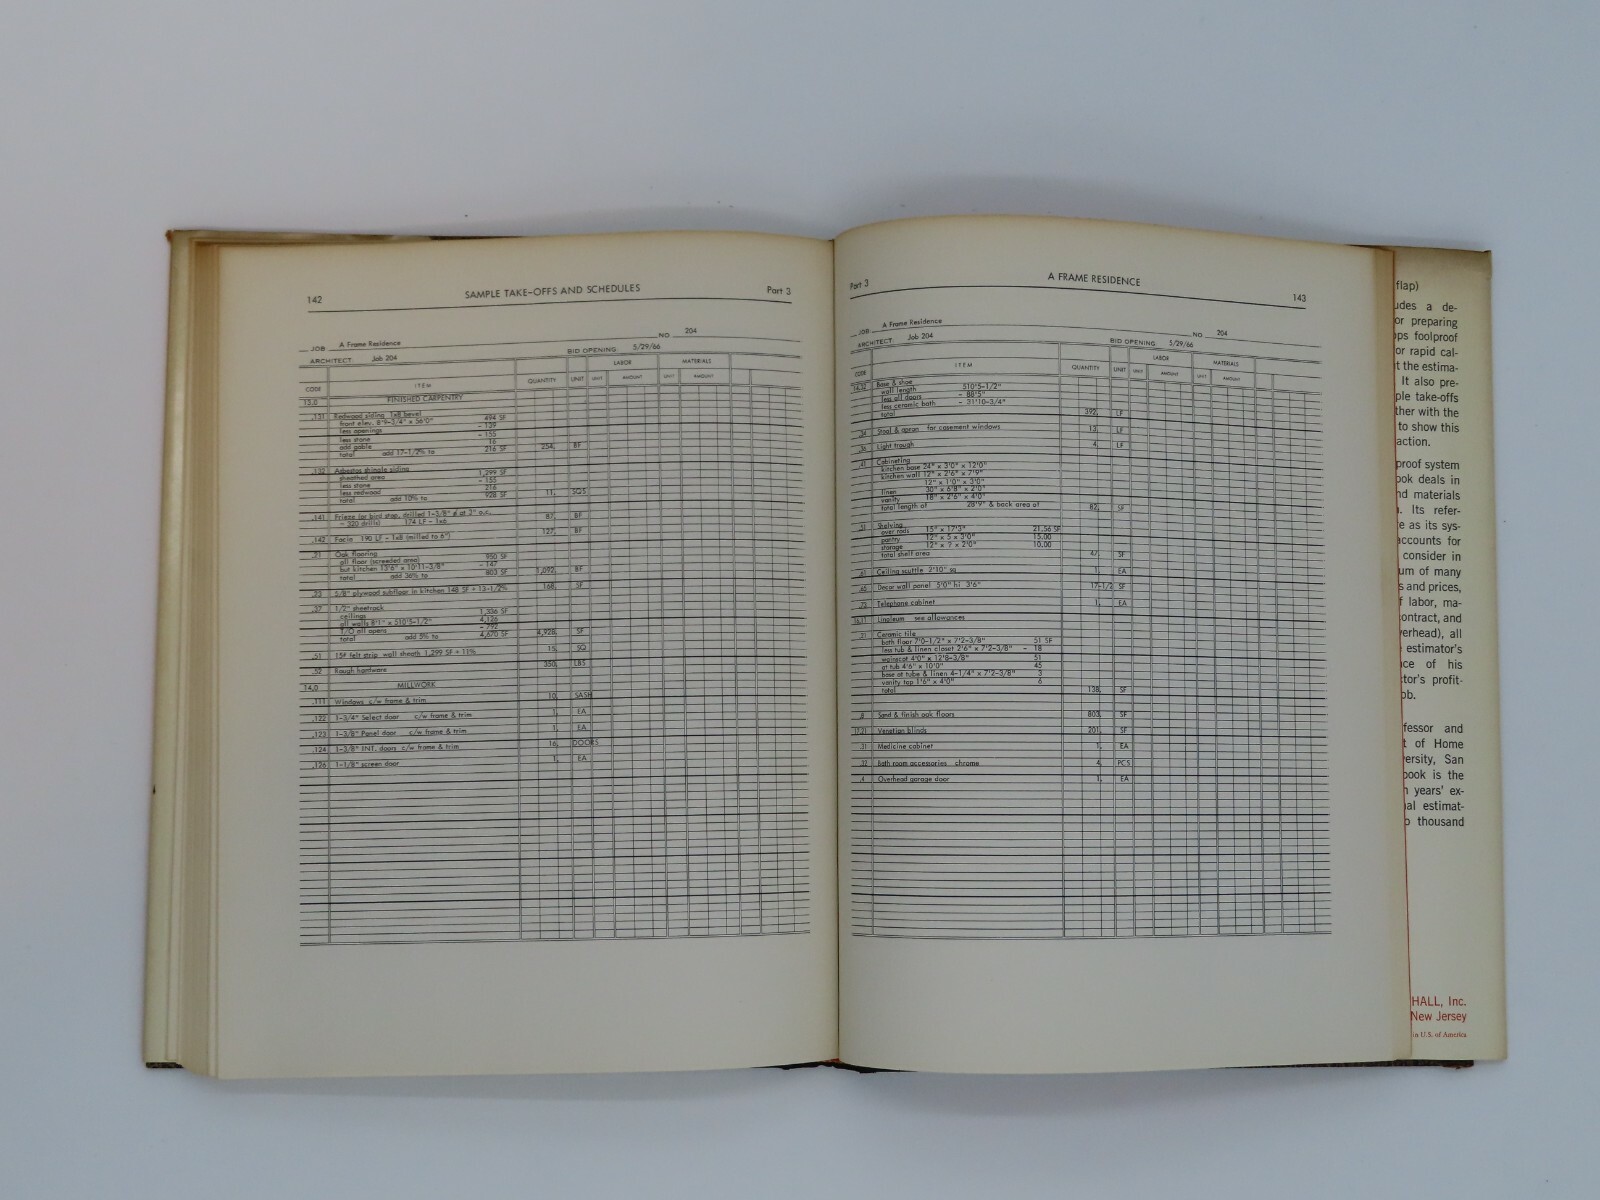 142
SAMPLE TAKE-OFFS AND SCHEDULES
Part 3
JOB A Frame Residence NO 204
ARCHITECT: Job 204 BID OPENING 5/29/66
LABOR MATERIALS
CODE ITEM QUANTITY UNIT UNIT AMOUNT UNIT AMOUNT
13.0 FINISHED CARPENTRY
.131 Redwood siding 1x8 bevel
front elev. 8'9-3/4" x 56'0" 494 SF
less openings - 139
less stone - 155
add gable 16
total add 17-1/2% to 216 SF 254. BF
.132 Asbestos shingle siding
sheathed area 1,299 SF
less stone - 155
less redwood 216
total add 10% to 928 SF 11. SQS
.141 Frieze (or bird stop, drilled 1-3/8" ø at 3" o.c.
- 320 drills) 174 LF - 1x6 87. BF
.142 Facia 190 LF - 1x8 (milled to 6") 127. BF
.21 Oak flooring
all floor (screeded area) 950 SF
but kitchen 13'6" x 10'11-3/8" - 147
total add 36% to 803 SF 1,092. BF
5/8" plywood subfloor in kitchen 148 SF + 13-1/2% 168. SF
.37 1/2" sheetrock
ceilings 1,336 SF
all walls 8'1" x 510'5-1/2" 4,126
T/O all opens - 792
total add 5% to 4,670 SF 4,928. SF
.51 15# felt strip wall sheath 1,299 SF + 11% 15. SQ
.52 Rough hardware 350. LBS
14.0 MILLWORK
.111 Windows c/w frame & trim 10. SASH
.122 1-3/4" Select door c/w frame & trim 1. EA
.123 1-3/8" Panel door c/w frame & trim 1. EA
.124 1-3/8" INT. doors c/w frame & trim 16. DOORS
.126 1-1/8" screen door 1. EA
Part 3
A FRAME RESIDENCE
143
JOB A Frame Residence NO. 204
ARCHITECT: Job 204 BID OPENING 5/29/66
LABOR MATERIALS
CODE ITEM QUANTITY UNIT UNIT AMOUNT UNIT AMOUNT
14.32 Base & shoe
wall length 510'5-1/2"
less all doors - 88'5"
less ceramic bath - 31'10-3/4"
total 392. LF
.34 Stool & apron for casement windows 13. LF
.36 Light trough 4. LF
.41 Cabineting
kitchen base 24" x 3'0" x 12'0"
kitchen wall 12" x 2'6" x 7'9"
12" x 1'0" x 3'0"
linen 30" x 6'8" x 2'0"
vanity 18" x 2'6" x 4'0"
total length of 28'9" & back area of 82. SF
.51 Shelving
over rods 15" x 17'3" 21.56 SF
pantry 12" x 5 x 3'0" 15.00
storage 12" x ? x 2'0" 10.00
total shelf area 47. SF
.61 Ceiling scuttle 2'10" sq 1. EA
.65 Decor wall panel 5'0" hi 3'6" 17-1/2 SF
.73 Telephone cabinet 1. EA
16.11 Linoleum see allowances
.21 Ceramic tile
bath floor 7'0-1/2" x 7'2-3/8" 51 SF
less tub & linen closet 2'6" x 7'2-3/8" - 18
wainscot 4'0" x 12'8-3/8" 51
at tub 4'6" x 10'0" 45
base at tube & linen 4-1/4" x 7'2-3/8" 3
vanity top 1'6" x 4'0" 6
total 138. SF
.8 Sand & finish oak floors 803. SF
17.21 Venetian blinds 201. SF
.31 Medicine cabinet 1. EA
.32 Bath room accessories chrome 4. PCS
.4 Overhead garage door 1. EA
flap)
udes a de-
or preparing
ops foolproof
or rapid cal-
t the estima-
It also pre-
ple take-offs
ther with the
to show this
action.
proof system
ook deals in
nd materials
. Its refer-
e as its sys-
accounts for
consider in
um of many
s and prices,
f labor, ma-
contract, and
verhead), all
estimator's
nce of his
ctor's profit-
ob.
fessor and
t of Home
versity, San
book is the
n years' ex-
nal estimat-
o thousand
HALL, Inc.
New Jersey
in U.S. of America